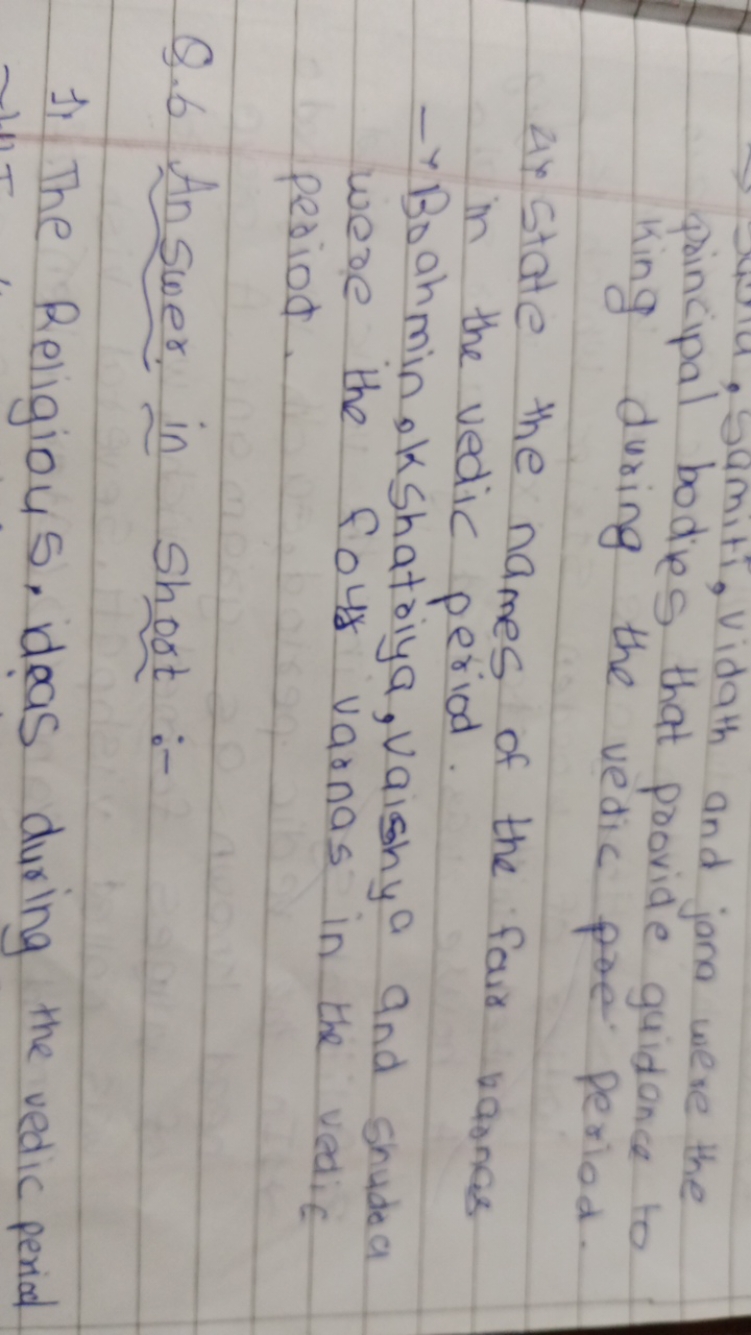 Samiti, vidath and jana were the
principal bodies that provide guidance to
king during the vedic period.
4) State the names of the four varnas
in the vedic period.
→ Brahmin, Kshatriya, Vaishya and Shudra
were the four varnas in the vedic
period.
Q.6 Answer in Short :-
1) The Religious, ideas during the vedic period